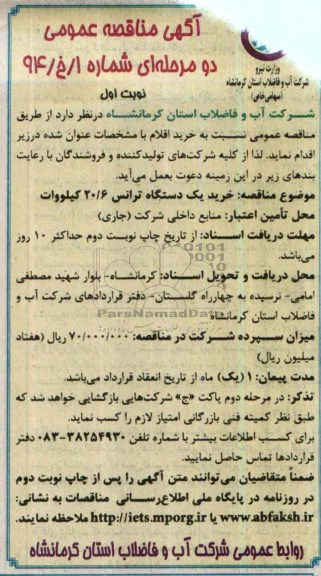 آگهی مناقصه عمومی
دو مرحله‌ای شماره ۱/خ/۹۴
نوبت اول
وزارت نیرو
شرکت آب و فاضلاب استان کرمانشاه
(سهامی خاص)
شرکت آب و فاضلاب استان کرمانشاه درنظر دارد از طریق
مناقصه عمومی نسبت به خرید اقلام با مشخصات عنوان شده درزیر
اقدام نماید. لذا از کلیه شرکت‌های تولیدکننده و فروشندگان با رعایت
بندهای زیر در این زمینه دعوت بعمل می‌آید.
موضوع مناقصه: خرید یک دستگاه ترانس ۲۰/۶ کیلووات
محل تأمین اعتبار: منابع داخلی شرکت (جاری)
مهلت دریافت اسناد: از تاریخ چاپ نوبت دوم حداکثر ۱۰ روز
می‌باشد.
محل دریافت و تحویل اسناد: کرمانشاه- بلوار شهید مصطفی
امامی- نرسیده به چهارراه گلستان- دفتر قراردادهای شرکت آب و
فاضلاب استان کرمانشاه
ParsNamadData
میزان سپرده شرکت در مناقصه: ۷۰/۰۰۰/۰۰۰ ریال (هفتاد
میلیون ریال)
مدت پیمان: ۱ (یک) ماه از تاریخ انعقاد قرارداد می‌باشد.
تذکر: در مرحله دوم پاکت «ج» شرکت‌هایی بازگشایی خواهد شد که
طبق نظر کمیته فنی بازرگانی امتیاز لازم را کسب نماید.
برای کسب اطلاعات بیشتر با شماره تلفن ۳۸۲۵۴۹۳۰-۰۸۳ دفتر
قراردادها تماس حاصل نمایید.
ضمناً متقاضیان می‌توانند متن آگهی را پس از چاپ نوبت دوم
در روزنامه در پایگاه ملی اطلاع‌رسانی مناقصات به نشانی:
www.abfaksh.ir یا http://iets.mporg.ir ملاحظه نمایند.
روابط عمومی شرکت آب و فاضلاب استان کرمانشاه